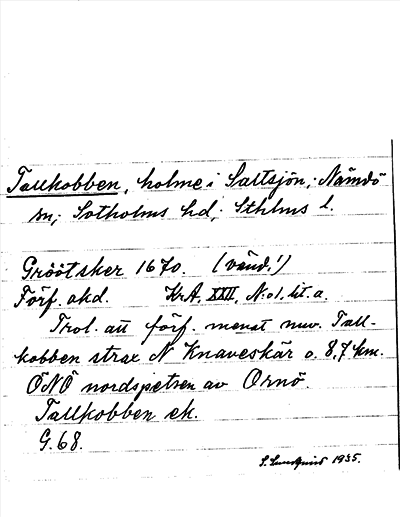 Tallkobben, holme i Saltsjön; Nämdö
sn; Sotholms hd; Sthlms l.
Gröötsker 1670. (vänd!)
Förf. okd. KrA, XXII, N:o 1. lit. a.
Trol. att förf. menat nuv. Tall-
kobben strax N Knaveskär o. 8,7 km.
ÖNÖ nordspetsen av Ornö.
Tallkobben ek.
G. 68.
S. Lundquist 1935.